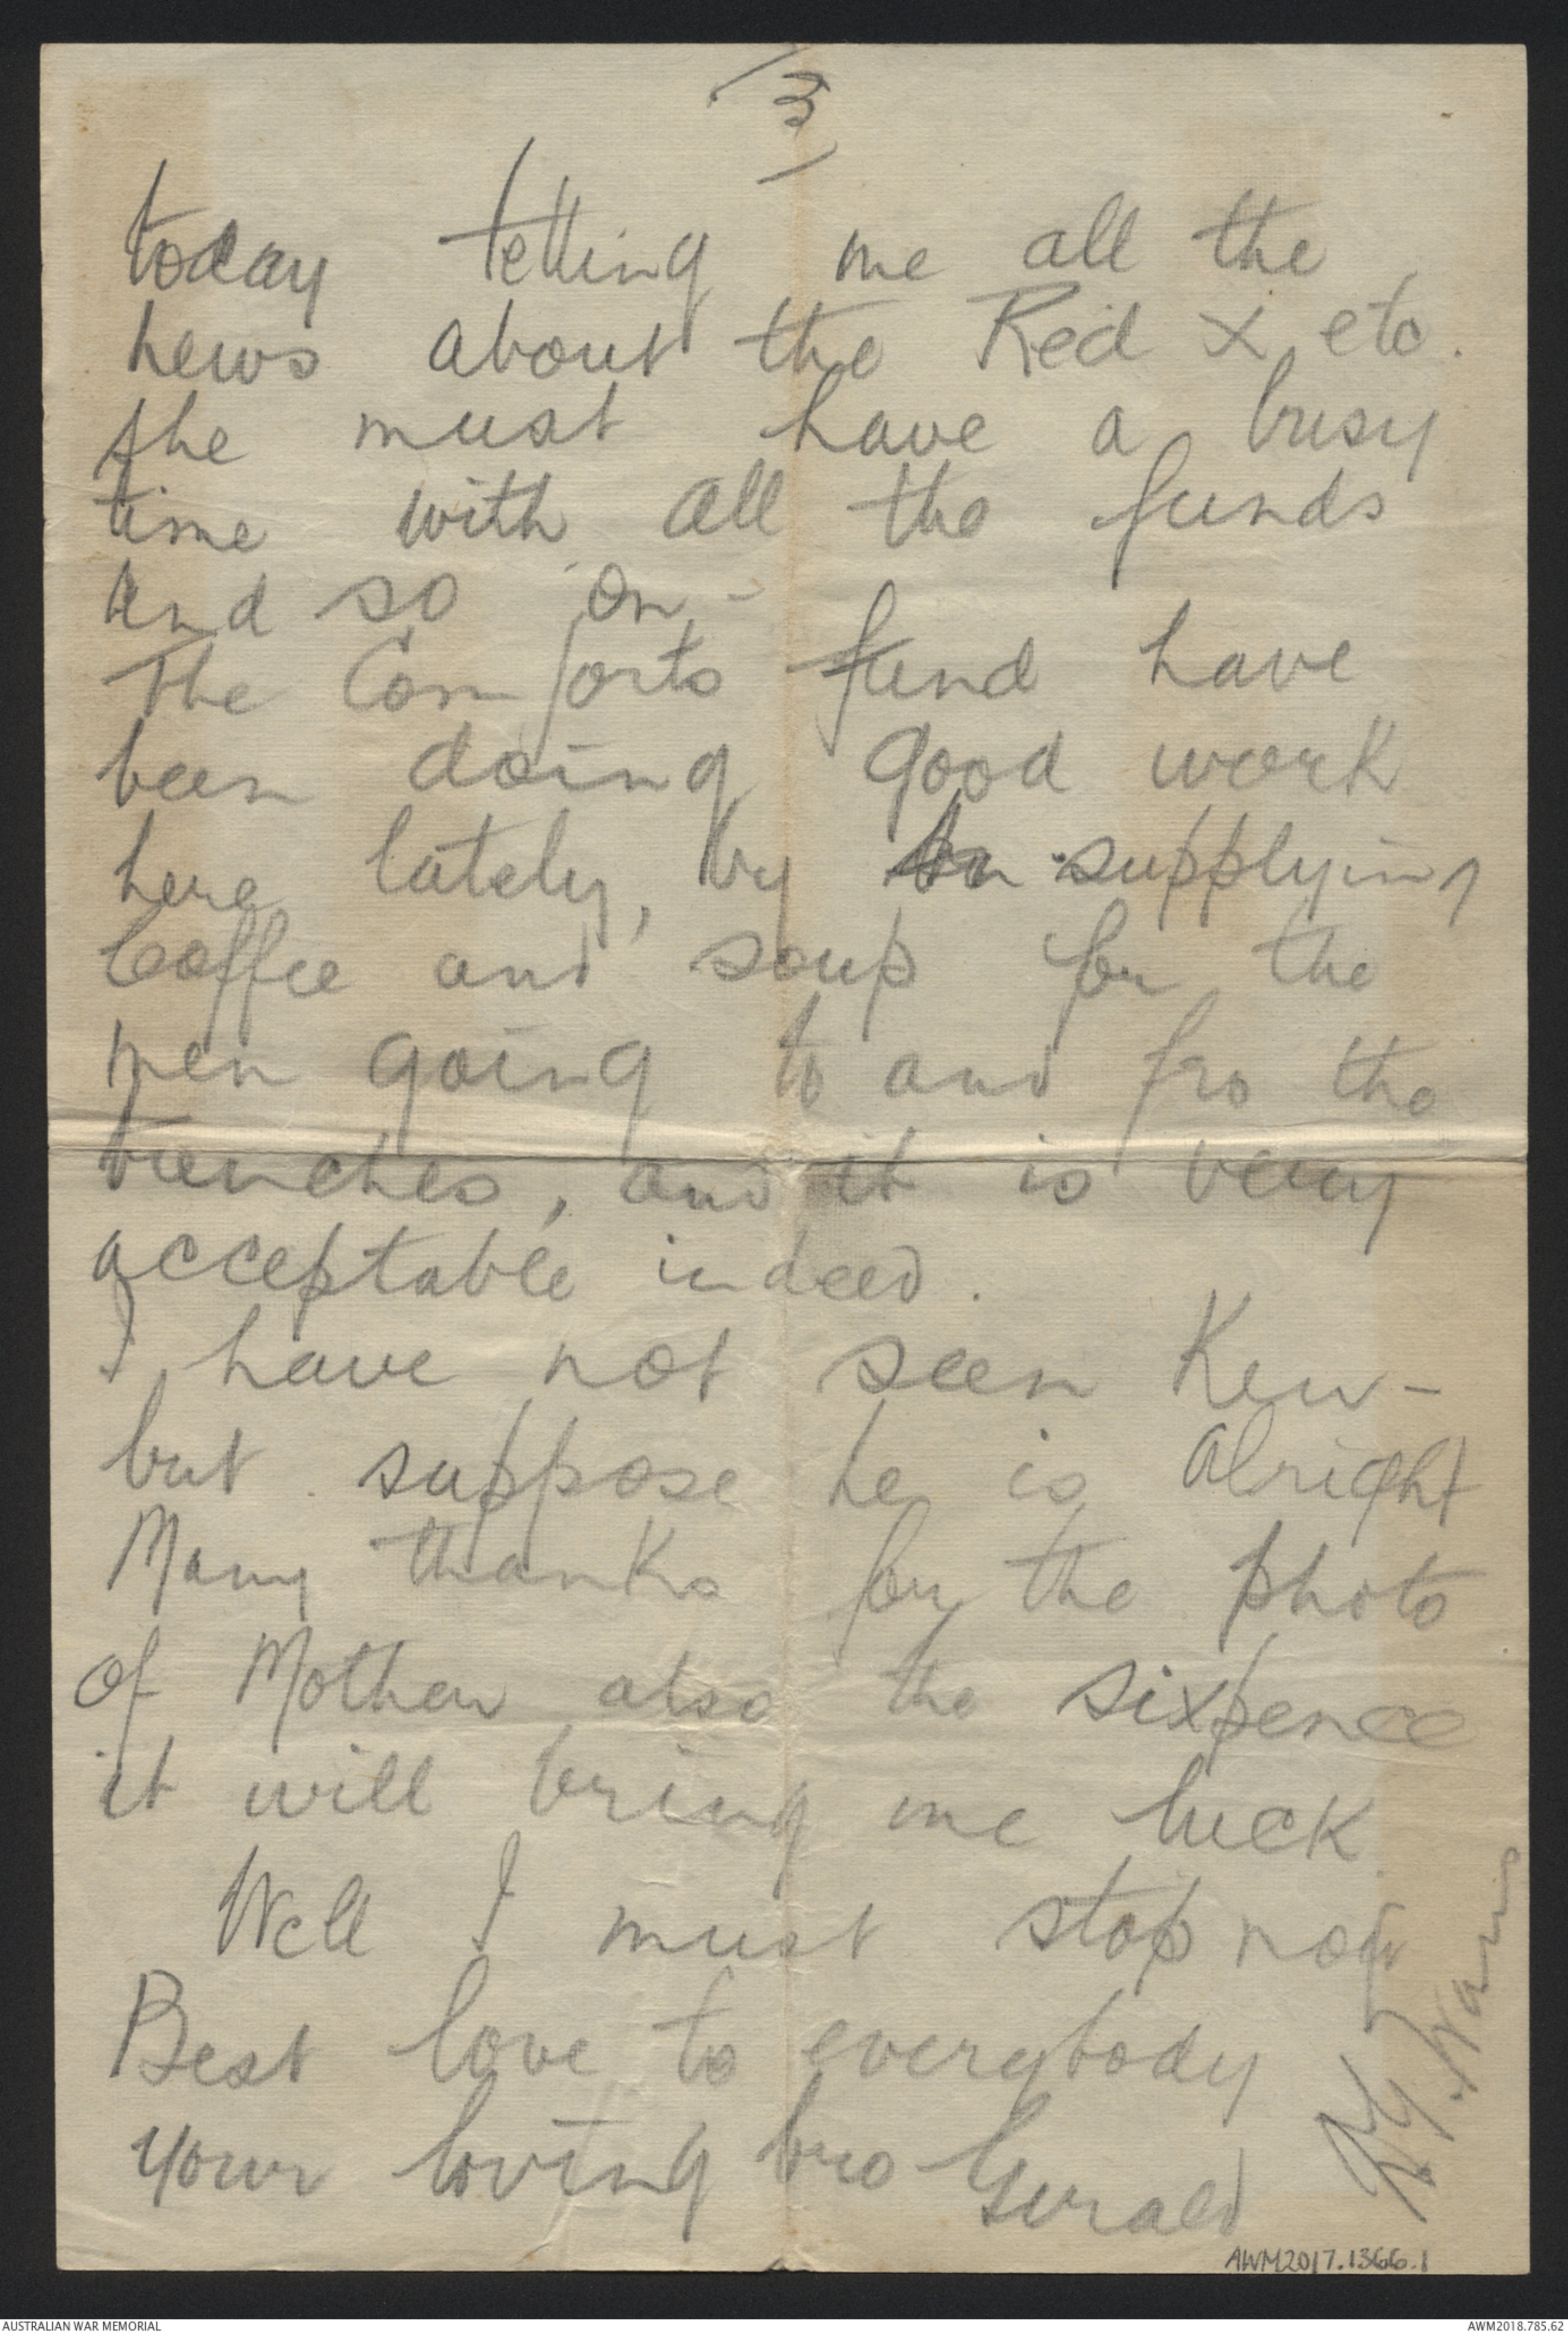 3
today telling me all the
news about the Red X etc.
she must have a busy
time with all the funds
and so on -
The Comforts fund have
been doing good work
here lately, by supplying
Coffee and soup for the
men going to and fro the
trenches, and it is very
acceptable indeed.
I have not seen Ken -
but suppose he is alright
Many thanks for the photo
of Mother also the sixpence
it will bring me luck.
Well I must stop now
Best love to everybody
your loving bro Gerald
AWM2017.1366.1
AUSTRALIAN WAR MEMORIAL
AWM2018.785.62